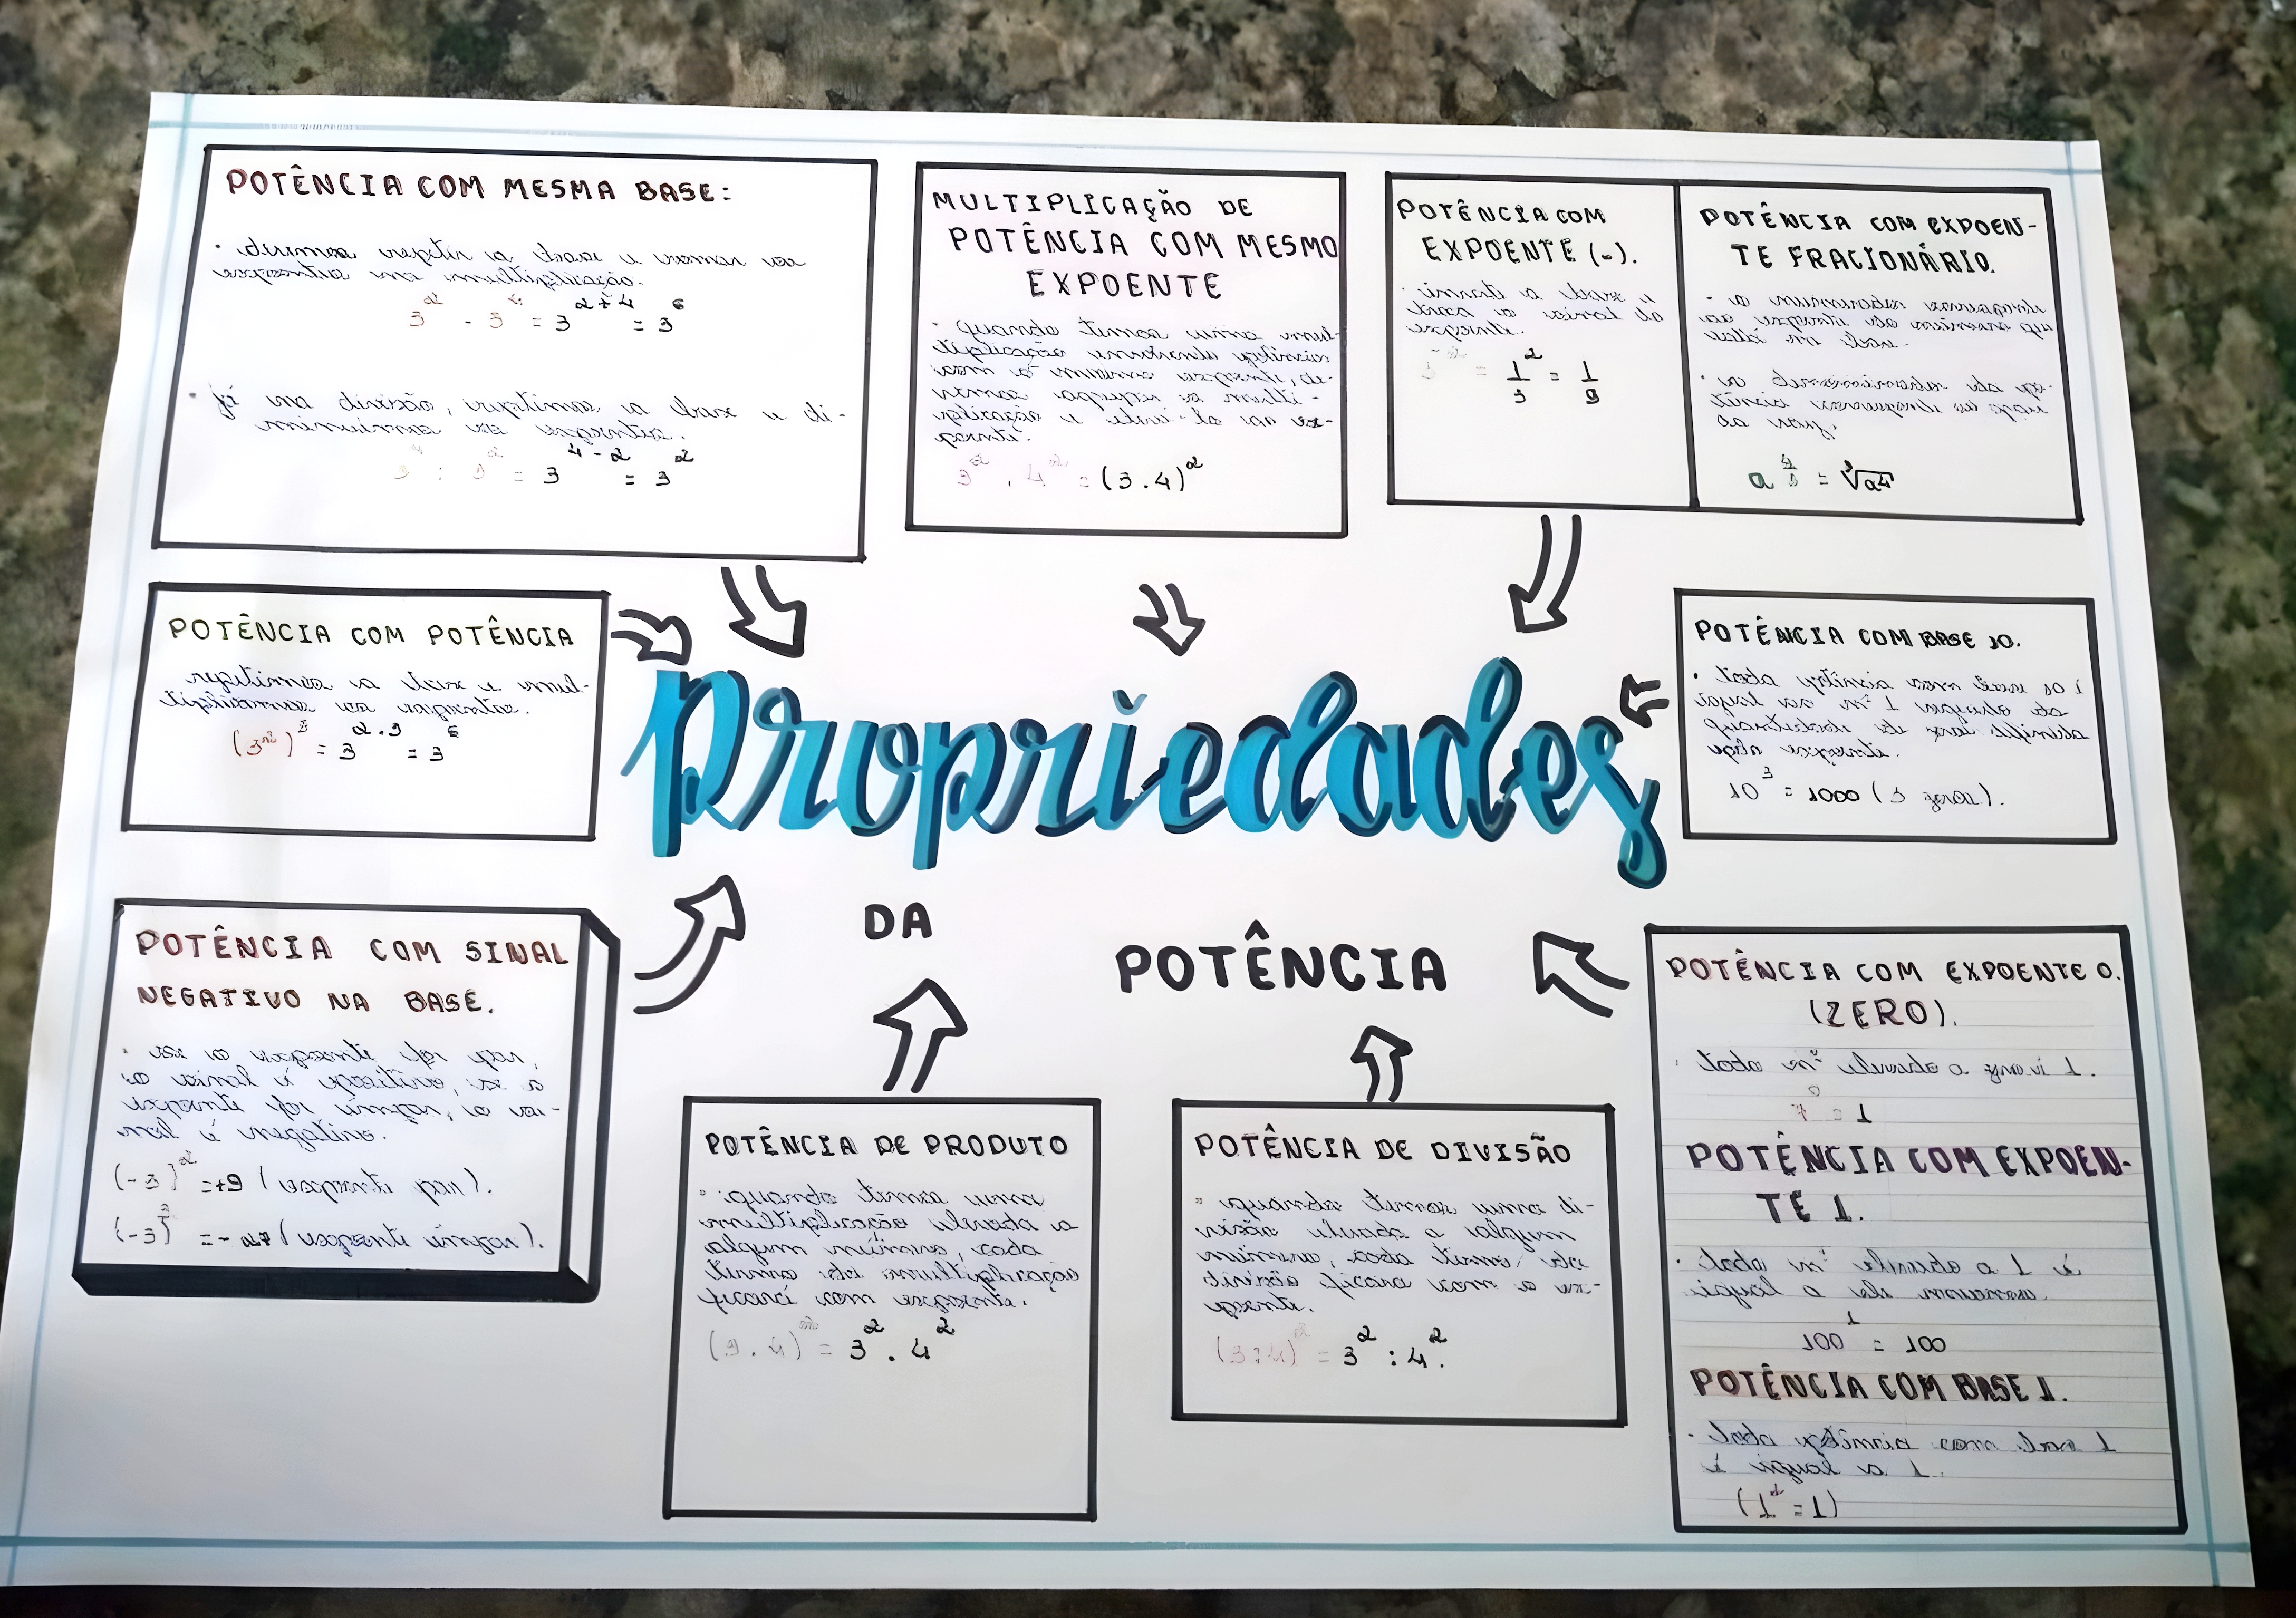 POTÊNCIA COM MESMA BASE:
repetir a base e somar os
expoentes na multiplicação.
3² . 3⁴ = 3²⁺⁴ = 3⁶
• já na divisão, repetimos a base e di-
minuimos os expoentes.
: = 3⁴⁻² = 3²
MULTIPLICAÇÃO DE
POTÊNCIA COM MESMO
EXPOENTE
• quando temos uma mul-
tiplicação envolvendo potências
com o mesmo expoente, de-
vemos agrupar a multi-
plicação e elevá-la ao ex-
poente.
3² . 4² = (3.4)²
POTÊNCIA COM
EXPOENTE (-).
• inverte a base e
troca o sinal do
expoente.
= 1/3² = 1/9
POTÊNCIA COM EXPOEN-
TE FRACIONÁRIO.
• o numerador
ao expoente do número que
está em base.
• o denominador da po-
tência corresponde ao grau
da raiz.
POTÊNCIA COM POTÊNCIA
repetimos a base e mul-
tiplicamos os expoentes.
(3²)³ = 3²·³ = 3⁶
POTÊNCIA COM BASE 10.
• toda potência com base 10 é
igual ao nº 1 seguido da
quantidade de zeros definida
pelo expoente.
10³ = 1000 (3 zeros).
Propriedades
DA
POTÊNCIA
POTÊNCIA COM SINAL
NEGATIVO NA BASE.
• se o expoente for par,
o sinal é positivo, se o
expoente for ímpar, o si-
nal é negativo.
(-3)² = +9 (expoente par).
(-3)³ = -27 (expoente ímpar).
POTÊNCIA DE PRODUTO
• quando temos uma
multiplicação elevada a
algum número, cada
termo da multiplicação
ficará com expoente.
(3.4)² = 3² . 4²
POTÊNCIA DE DIVISÃO
• quando temos uma di-
visão elevada a algum
número, cada termo da
divisão ficara com o ex-
poente.
(3:4)² = 3² : 4².
POTÊNCIA COM EXPOENTE 0.
(ZERO).
• todo nº elevado a zero é 1.
7⁰ = 1
POTÊNCIA COM EXPOEN-
TE 1.
• todo nº elevado a 1 é
igual a ele mesmo.
100¹ = 100
POTÊNCIA COM BASE 1.
• toda potência com base 1
é igual a 1.
(1² = 1)